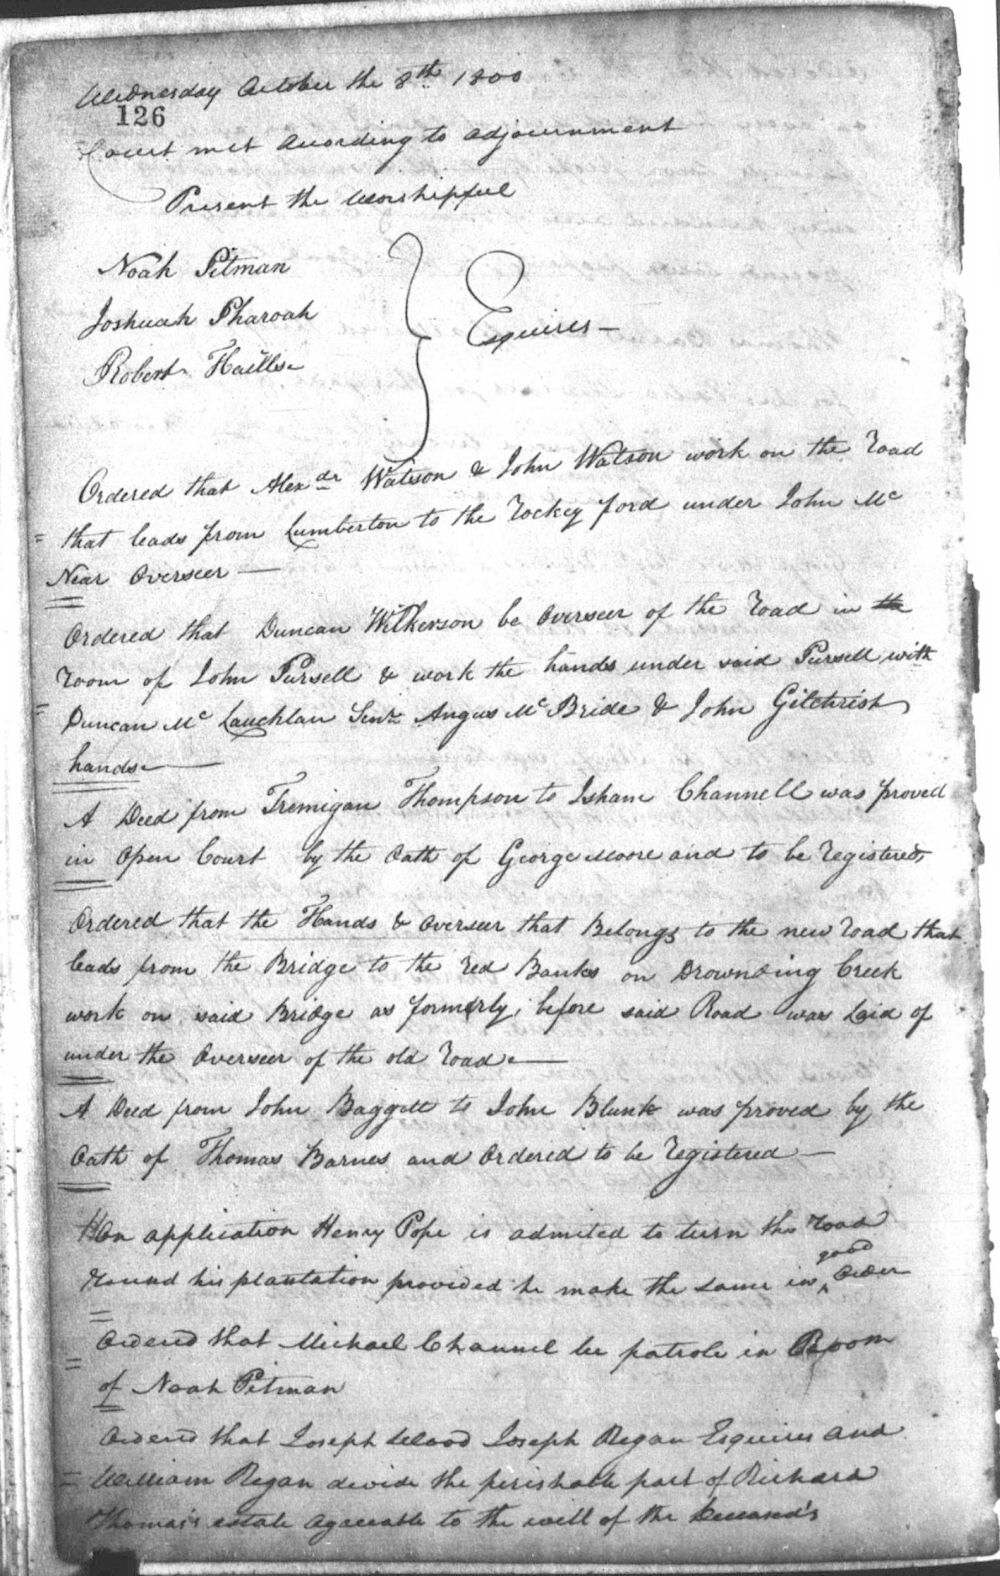 Wednesday October the 8th 1800
126
Court met according to adjournment
Present the Worshipful
Noah Pitman
Joshuah Pharoah
Robert Haills
Esquires —
Ordered that Alexdr Watson & John Watson work on the road
that leads from Lumberton to the rockey ford under John Mc
Near Overseer —
Ordered that Duncan Wilkerson be Overseer of the road in the
room of John Pursell & work the hands under said Pursell with
Duncan Mc Lauchlan Senr Angus Mc Bride & John Gilchrist
hands —
A Deed from Tremigan Thompson to Isham Channell was proved
in Open Court by the Oath of George Moore and to be registered
Ordered that the Hands & Overseer that Belongs to the new road that
leads from the Bridge to the red Banks on Drownding Creek
work on said Bridge as formerly before said Road was Laid of
under the Overseer of the old road —
A Deed from John Baggett to John Blunt was proved by the
Oath of Thomas Barnes and Ordered to be registered —
On application Henry Pope is admited to turn the road
round his plantation provided he make the same in good Order
Ordered that Michael Channel be patrole in Room
of Noah Pitman
Ordered that Joseph Wood Joseph Regan Esquires and
William Regan divide the perishable part of Richard
Thomas's estate agreeable to the will of the Deceased's